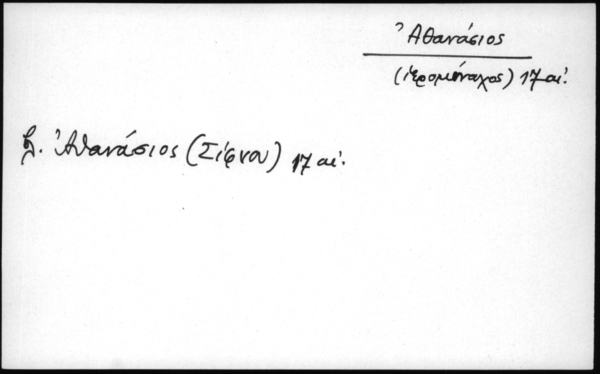 Ἀθανάσιος
(ἱερομόναχος) 17 αἰ.
βλ. Ἀθανάσιος (Σίφνου) 17 αἰ.